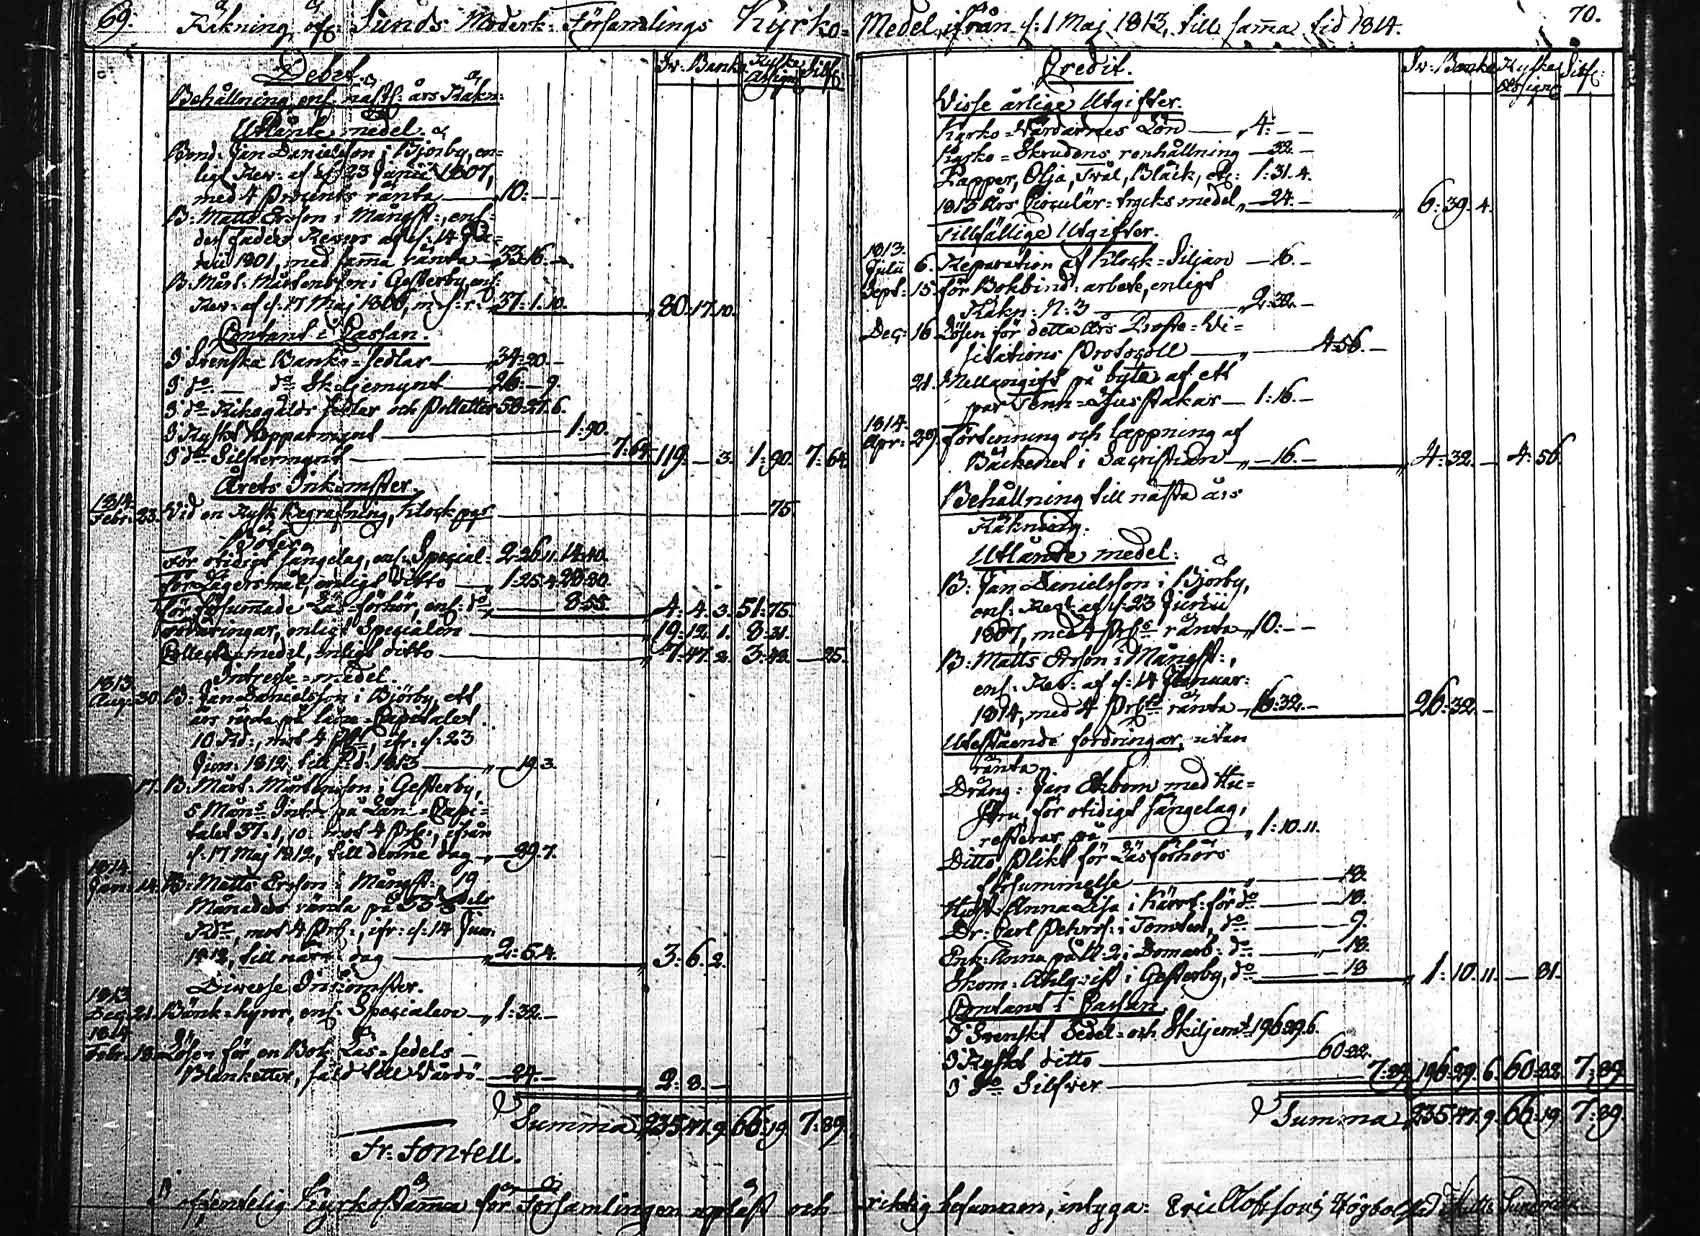 69. Räkning öfv: Sunds Moderk: Församlings Kyrko=
Debet.
Sv: Banko Ryska Assign: Silf:
Behållning enl: näst: års Räkn:
Utlånte medel.
Bond: Jan Danielsson i Björby, en=
ligt Rev: af d: 23 Junii 1807,
med 4 Procents ränta 10. — —
B: Matts Ersson i Mångst:, enl:
des Faders Revers af d: 14
1801, med sama ränta 33.16. —
B: Mårt: Mårtensson i Gesterby, enl:
Rev: af d: 17 Maj 1806, 37.1.10. 80.17.10.
Contant i Cassan.
I Svenska Banko=Sedlar 34.20. —
I do do Skiljemynt 26. — 9.
I do Riksgälds Sedlar och Polletter 58.27.6.
I Ryskt Kopparmynt 1:90.
I do Silfvermynt 7.64. 119. — 3. 1:90. 7:64.
Årets Inkomster.
1814.
Febr: 23. Vid en Rysk Begrafning, Klock 75.
För otidigt sängelag, enl: Special: 2.26.11. 14.40.
För Lägersmål, enligt ditto 1.25.4. 28.80.
För försummade Läs=förhör, enl: do 8.55. 4. 4. 3. 51:75.
enligt Specialen 19.12. 1. 8:21.
Collecte=medel, enligt ditto 7.47.2. 3.42. — 25.
Intresse=medel.
1813.
Aug: 30. B: Jan Danielsson i Björby, ett
års ränta på Låne=Capitalet
10 Rd:, mot 4 Pct, ifr: d: 23
Jun: 1812, till d:d: 1813 — 19.3.
17. B: Mårt: Mårtensson i Gesterby,
5 Mån:s Intr: på Lån=Capi=
talet 37:1,10: mot 4 Prc:, ifrån
d: 17 Maj 1812, till denne dag — 29.7.
1814
Jan: 14. B: Matts Ersson i Mångst: 19
Månaders ränta på 33
Rd:, mot 4 Prc:, ifr: d: 14 Jun:
1812, till närv: dag 2:5.4. 3: 6. 2.
Diverse Inkomster.
1813
Dec: 21. Bänk=hyror, enl: Specialen 1:32. —
1814
Febr: 18. Lösen för en Bok Läs=Sedels=
Blanketter, såld till Vårdö 24. — 2: 8. —
Summa 235.47.9. 66:19 7:89.
Fr: Tontell.
I offentelig Kyrkostämma för Församlingen upläst och
Medel, ifrån d: 1 Maj 1813, till sama tid 1814. 70.
Credit.
Sv: Banko Ryska Assign: Silf:
Visse årlige Utgifter.
Kyrko=Värdarnes Lön 4: — —
Kyrko=Skrudens renhållning — 32. —
Papper, Olja, Tvål, Bläck, etc: 1:31.4.
1813 Års Circulär=trycks medel — 24. — 6: 39. 4.
Tillfällige Utgifter.
1813.
Julii 6. Reparation af Klock=Viljan — 16. —
Sept: 15. för Bokbind: arbete, enligt
Räkn: N: 3 2:32. —
Dec: 16. Lösen för detta års Prosts=Vi=
sitations Protocoll 4:56. —
21. Mellangift på byte af ett
par Tenn=Ljusstakar 1:16. —
1814.
Apr: 29. förtenning och lappning af
Bäckenet i Sacristian — 16. — 4: 32. — 4:56.
Behållning till nästa års
Räkning.
Utlånte medel:
B: Jan Danielsson i Björby,
enl: Rev: af d: 23 Junii
1807, med 4 Prc ränta 10: — —
B: Matts Ersson i Mångst:,
enl: Rev: af d: 14 Januar:
1814, med 4 Prc ränta 16:32. — 26:32. —
Utestående fordringar, utan
ränta.
Dräng: Jan Ekbom med Hu=
stru, för otidigt sängelag,
resterar på 1:10.11.
Ditto Plikt för Läsförhörs
försummelse 18.
Hust: Anna Lisa i Kärrt: för do 18.
Dr: Carl Petersf: i Tomten, do 9.
Enk: Anna på N: 2 i Domarb: do 18.
Skom: Ahlqvist i Gesterby, do 18 1:10.11. — 81.
Contant i Cassan
I Svenskt Sedel= och Skiljemt 196.29.6.
I Ryskt ditto 60:82.
I do Silfver 7:89. 196.29.6. 60:82. 7:89
Summa 235.47.9. 66:19 7:89
riktig befunnen, intyga: Eric Olofsson i Högbolstad Matts Sundman